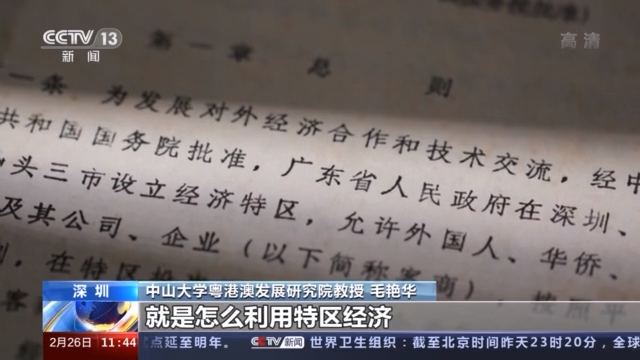 CCTV 13
新闻
高清
第一章 总 则
一条 为发展对外经济合作和技术交流，经中
共和国国务院批准，广东省人民政府在深圳、
头三市设立经济特区，允许外国人、华侨、
及其公司、企业（以下简称客商），按照平
在特区投
深圳
中山大学粤港澳发展研究院教授 毛艳华
就是怎么利用特区经济
2月26日 11:44
点延至明年。 CCTV新闻 世界卫生组织：截至北京时间昨天23时20分，全球